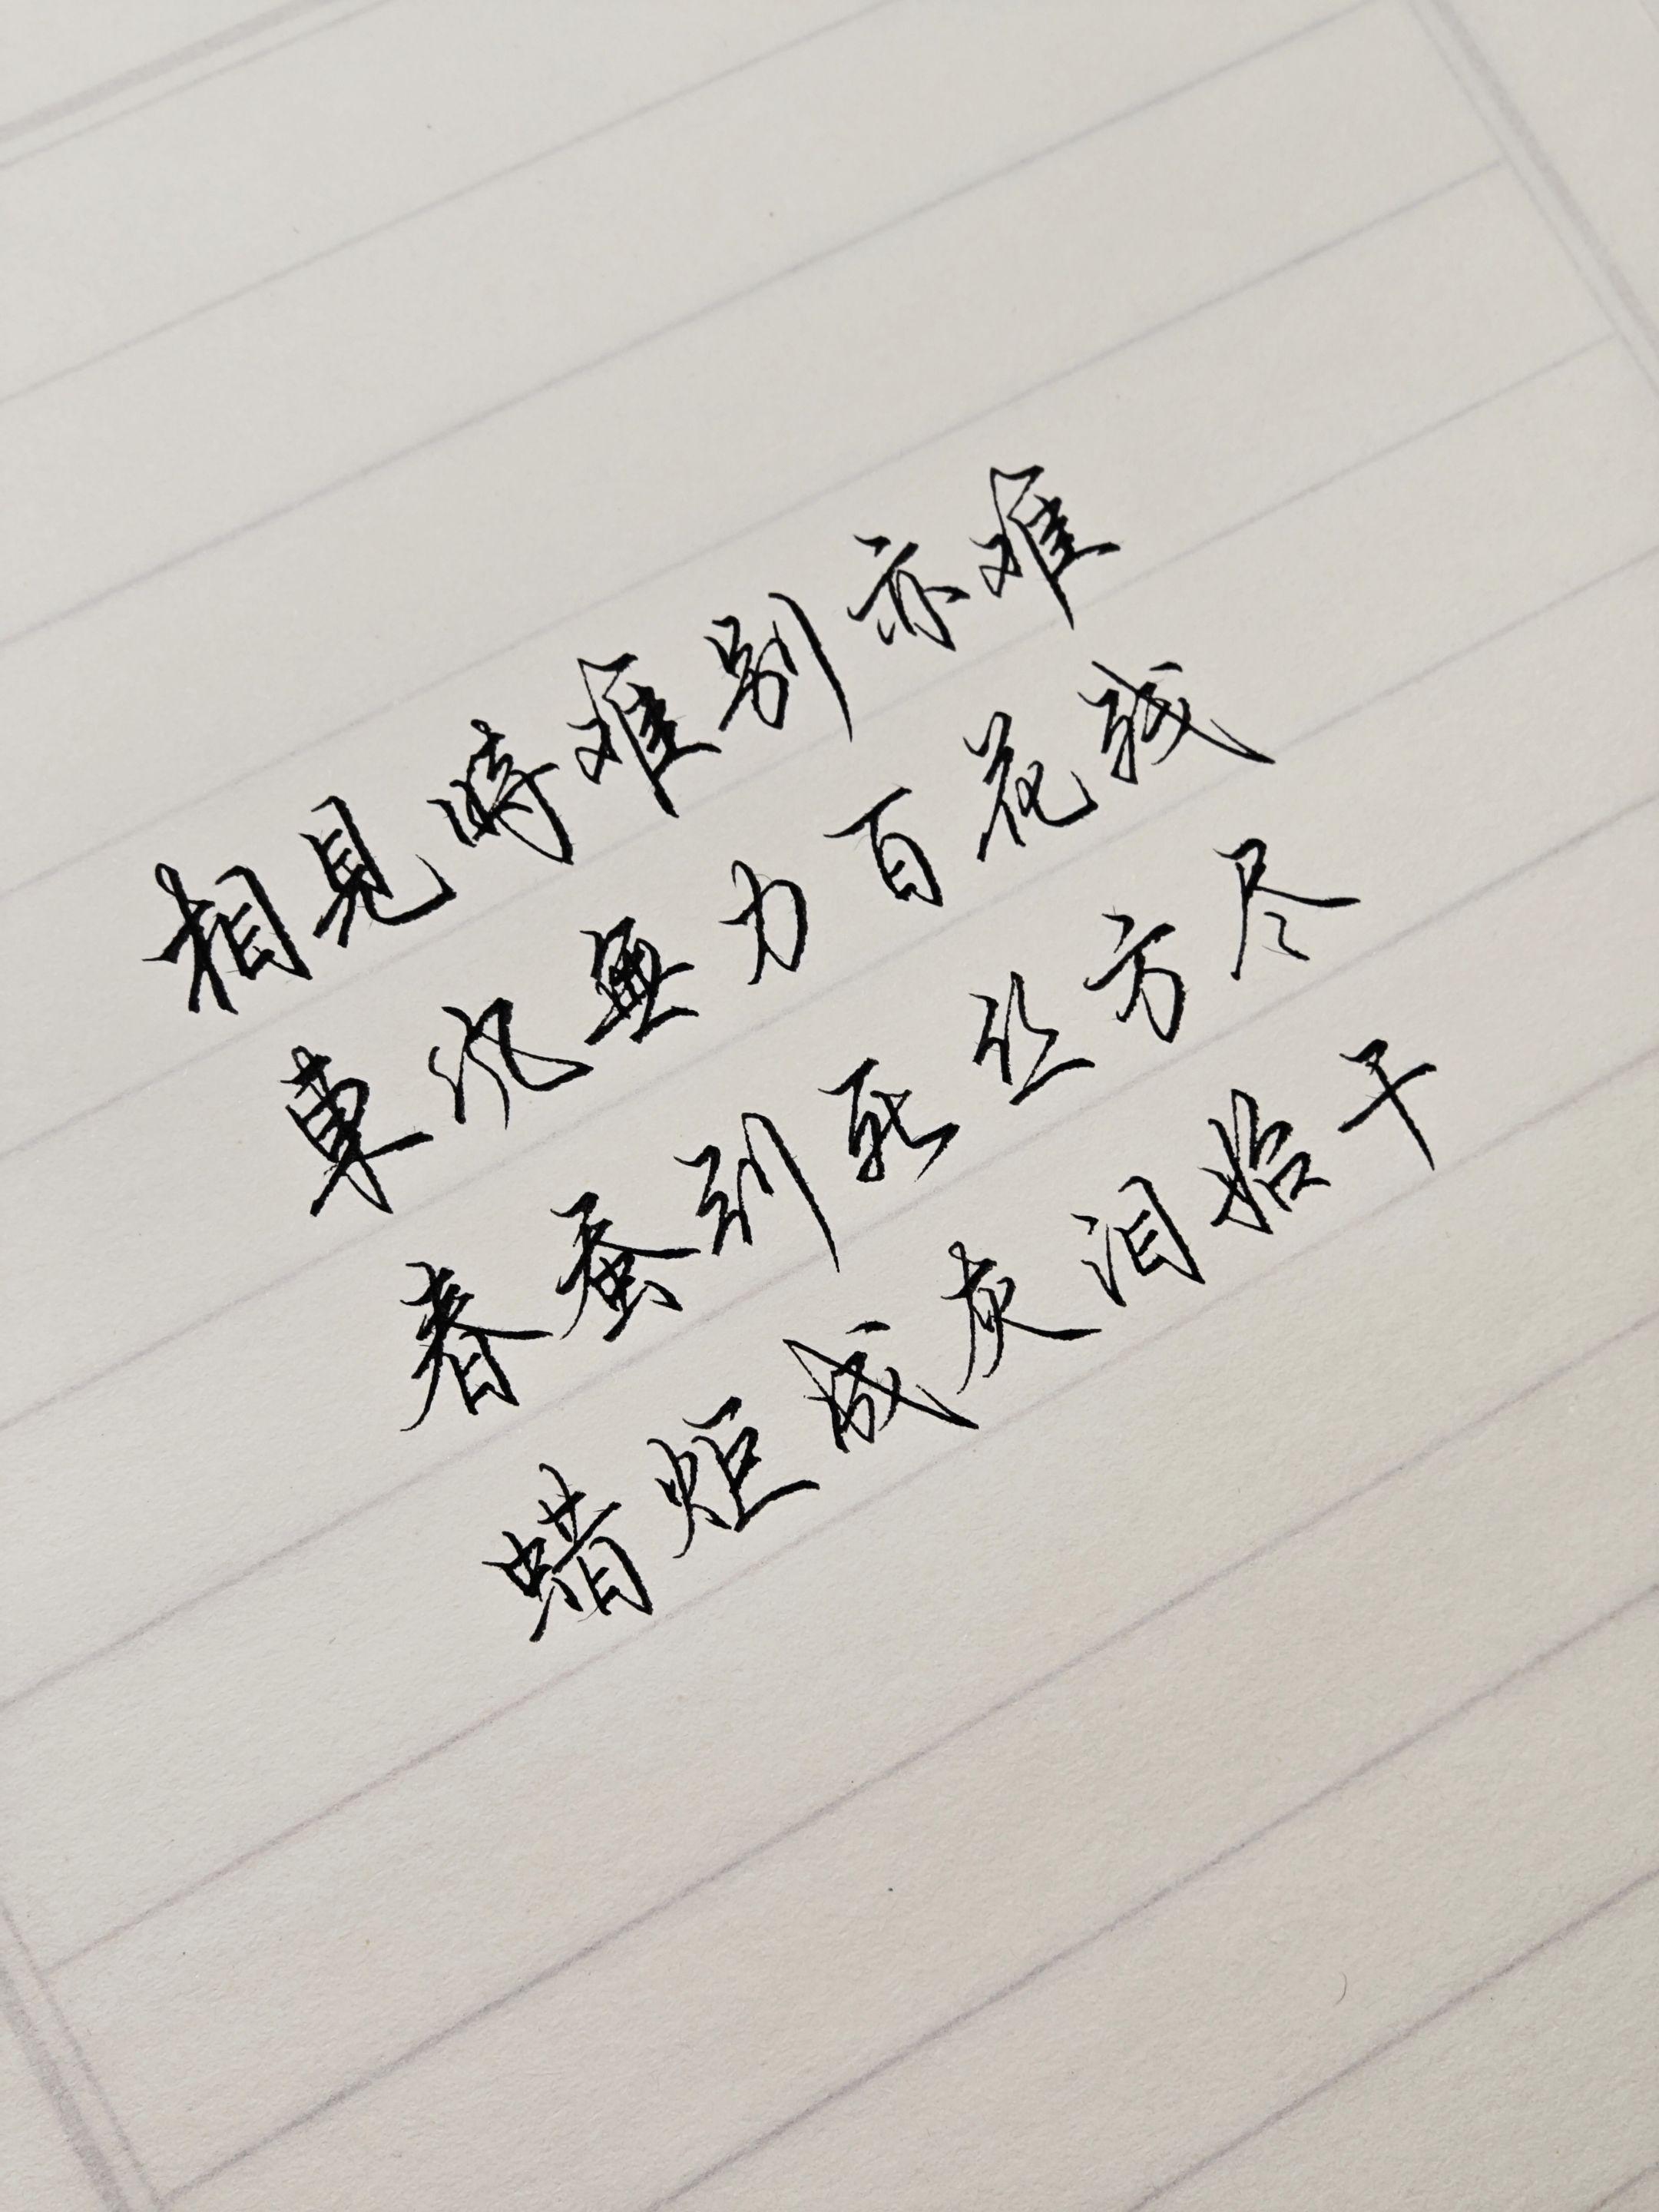 相見時难别亦难
東风無力百花残
春蚕到死丝方尽
蜡炬成灰泪始干